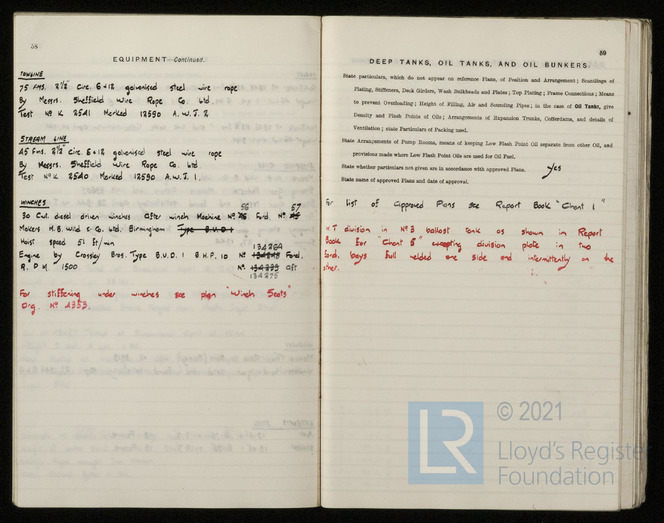 58
EQUIPMENT—Continued.
TOWLINE
75 Fms. 2½" Circ. 6×12 galvanised steel wire rope
By Messrs. Sheffield Wire Rope Co. Ltd.
Test Nº K 2541 Marked 12590 A.W.J. 2
STREAM LINE
45 Fms. 2½" Circ. 6×12 galvanised steel wire rope
By Messrs. Sheffield Wire Rope Co. Ltd.
Test Nº K 2540 Marked 12590 A.W.J. 1.
WINCHES
56 57
30 Cwt. diesel driven winches After winch Machine Nº Ford. Nº
Makers H.B. Wild & Co. Ltd. Birmingham Type B.U.D.1
Hoist speed 51 ft/min
134269
Engine by Crossley Bros. Type B.U.D. 1 B.H.P. 10 Nº Ford.
R.P.M. 1500 Nº Aft
134275
For stiffening under winches see plan "Winch Seats"
Drg. Nº A353.
59
DEEP TANKS, OIL TANKS, AND OIL BUNKERS.
State particulars, which do not appear on reference Plans, of Position and Arrangement; Scantlings of
Plating, Stiffeners, Deck Girders, Wash Bulkheads and Plates; Top Plating; Frame Connections; Means
to prevent Overloading; Height of Filling, Air and Sounding Pipes; in the case of Oil Tanks, give
Density and Flash Points of Oils; Arrangements of Expansion Trunks, Cofferdams, and details of
Ventilation; state Particulars of Packing used.
State Arrangements of Pump Rooms, means of keeping Low Flash Point Oil separate from other Oil, and
provisions made where Low Flash Point Oils are used for Oil Fuel.
State whether particulars not given are in accordance with approved Plans. Yes
State name of approved Plans and date of approval.
For list of Approved Plans see Report Book "Chant 1"
H.T division in Nº3 ballast tank as shown in Report
Book for "Chant 5" excepting division plate in two
ford. bays full welded one side and intermittently on the
other.
LR
© 2021
Lloyd's Register
Foundation